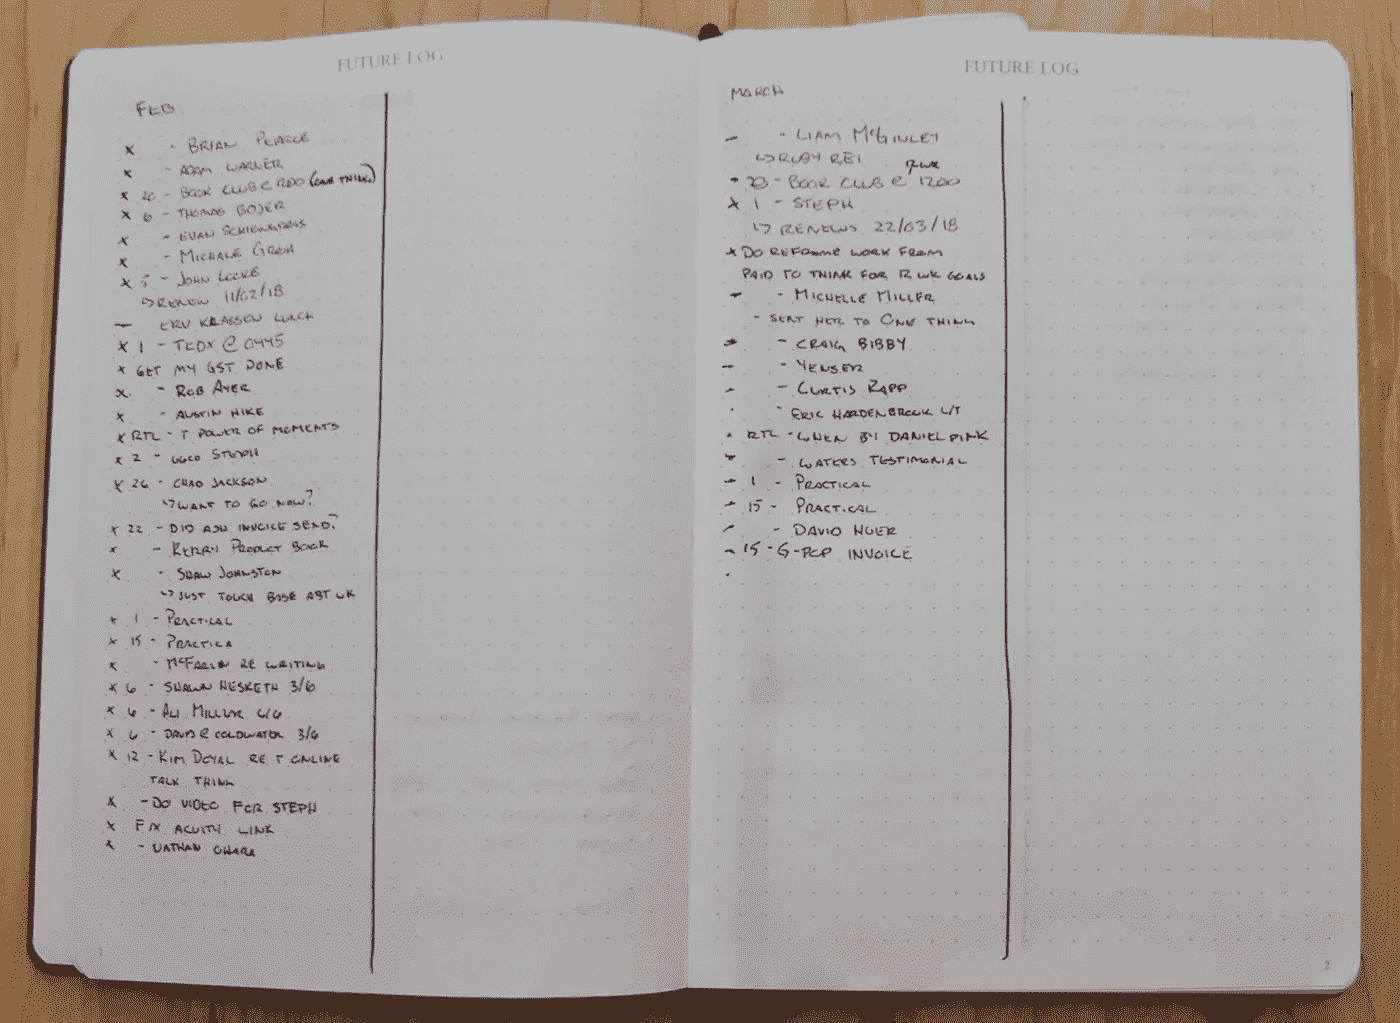 FUTURE LOG
FEB
x - BRIAN PEARCE
x - ADAM WARNER
x 20 - BOOK CLUB @ 1200 (ONE THING)
x 6 - THOMAS BOJER
x - EVAN
x - MICHALE
x 5 - JOHN LOCKE
↳ RENEW 11/02/18
— ERV KLASSEN LUNCH
x 1 - TEDX @ 0445
x GET MY GST DONE
x - ROB AYER
x - AUSTIN HIKE
x RTL - T POWER OF MOMENTS
x 2 - STEPH
x 26 - CHAD JACKSON
↳ WANT TO GO NOW?
x 22 - DID ASH INVOICE SEND?
x - KERRY PRODUCT BOOK
x - SHAW JOHNSTON
↳ JUST TOUCH BASE ABT WK
x 1 - PRACTICAL
x 15 - PRACTICA
x - RE WRITING
x 6 - SHAWN HESKETH 3/6
x 6 - ALI MILLER 6/6
x 6 - DAVID @ COLDWATER 3/6
x 12 - KIM DOYAL RE T ONLINE
TALK THINK
x - DO VIDEO FOR STEPH
x FIX ACUITY LINK
x - NATHAN OHARA
1
FUTURE LOG
MARCH
- - LIAM McGINLEY
↳ RUBY REI
12 WK
- 20 - BOOK CLUB @ 1200
x 1 - STEPH
↳ RENEWS 22/03/18
x DO REFRAME WORK FROM
PAID TO THINK FOR 12 WK GOALS
- - MICHELLE MILLER
- SENT HER TO ONE THING
- - CRAIG BIBBY
- - YENSER
- - CURTIS RAPP
· - ERIC HARDENBROOK L/T
· RTL - WHEN BY DANIEL PINK
- - WATERS TESTIMONIAL
- 1 - PRACTICAL
- 15 - PRACTICAL
- - DAVID
- 15 - G-POP INVOICE
·
2